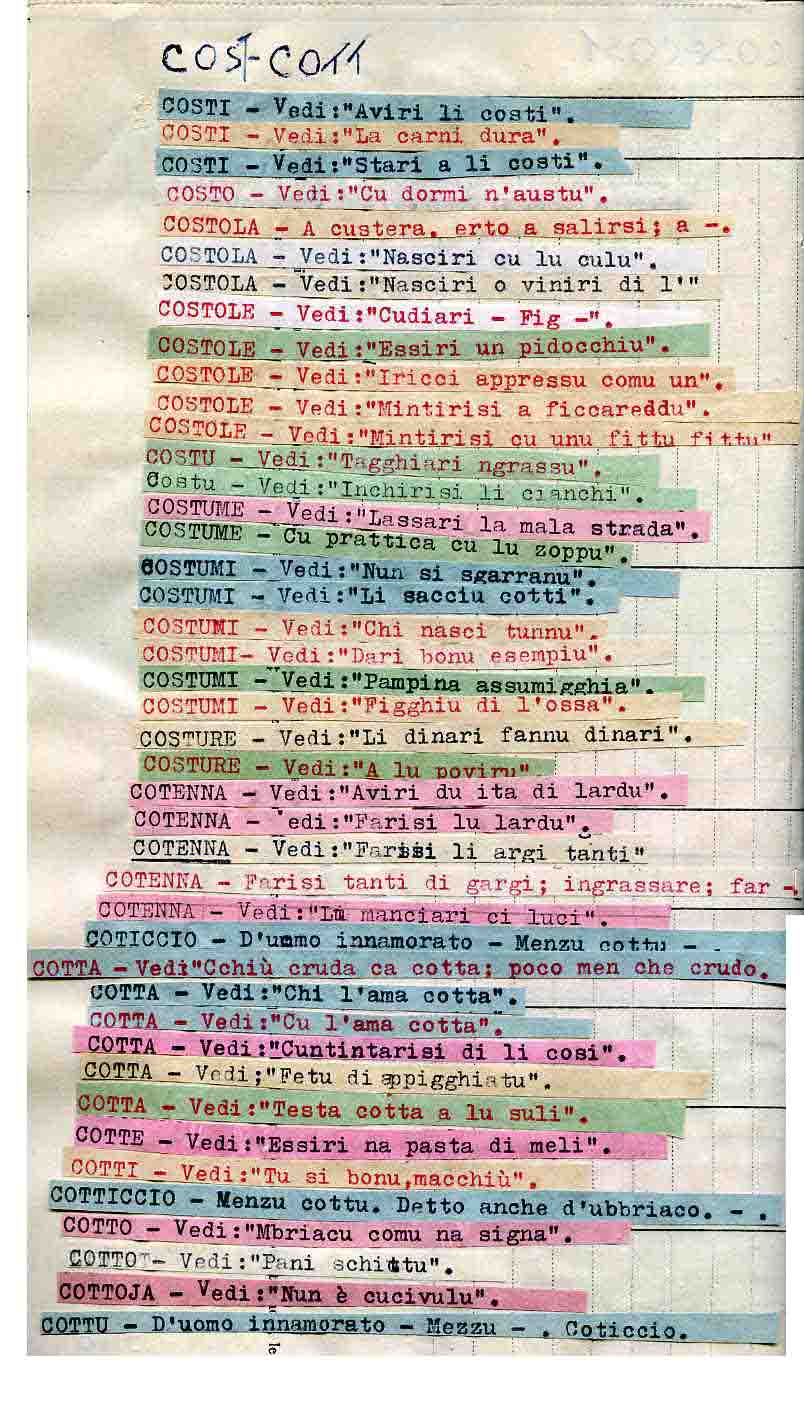 COST-COTT
COSTI - Vedi:"Aviri li costi".
COSTI - Vedi:"La carni dura".
COSTI - Vedi:"Stari a li costi".
COSTO - Vedi:"Cu dormi n'austu".
COSTOLA - A custera. erto a salirsi; a -.
COSTOLA - Vedi:"Nasciri cu lu culu".
COSTOLA - Vedi:"Nasciri o viniri di l'"
COSTOLE - Vedi:"Cudiari - Fig -".
COSTOLE - Vedi:"Essiri un pidocchiu".
COSTOLE - Vedi:"Iricci appressu comu un".
COSTOLE - Vedi:"Mintirisi a ficcareddu".
COSTOLE - Vedi:"Mintirisi cu unu fittu fittu"
COSTU - Vedi:"Tagghiari ngrassu".
Costu - Vedi:"Inchirisi li cianchi".
COSTUME - Vedi:"Lassari la mala strada".
COSTUME - Cu prattica cu lu zoppu".
COSTUMI - Vedi:"Nun si sgarranu".
COSTUMI - Vedi:"Li sacciu cotti".
COSTUMI - Vedi:"Chi nasci tunnu".
COSTUMI- Vedi:"Dari bonu esempiu".
COSTUMI - Vedi:"Pampina assumigghia".
COSTUMI - Vedi:"Figghiu di l'ossa".
COSTURE - Vedi:"Li dinari fannu dinari".
COSTURE - Vedi:"A lu poviru"
COTENNA - Vedi:"Aviri du ita di lardu".
COTENNA - Vedi:"Farisi lu lardu".
COTENNA - Vedi:"Farisi li argi tanti"
COTENNA - Farisi tanti di gargi; ingrassare; far -.
COTENNA - Vedi:"Lu manciari ci luci".
COTICCIO - D'uomo innamorato - Menzu cottu - .
COTTA - Vedi"Cchiù cruda ca cotta; poco men che crudo.
COTTA - Vedi:"Chi l'ama cotta".
COTTA - Vedi:"Cu l'ama cotta".
COTTA - Vedi:"Cuntintarisi di li cosi".
COTTA - Vedi;"Fetu di appigghiatu".
COTTA - Vedi:"Testa cotta a lu suli".
COTTE - Vedi:"Essiri na pasta di meli".
COTTI - Vedi:"Tu si bonu,macchiù".
COTTICCIO - Menzu cottu. Detto anche d'ubbriaco. - .
COTTO - Vedi:"Mbriacu comu na signa".
COTTO - Vedi:"Pani schittu".
COTTOJA - Vedi:"Nun è cucivulu".
COTTU - D'uomo innamorato - Mezzu - . Coticcio.
le